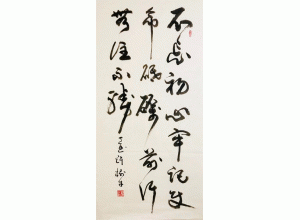 不忘初心牢记使
命砥砺前行
無往不勝